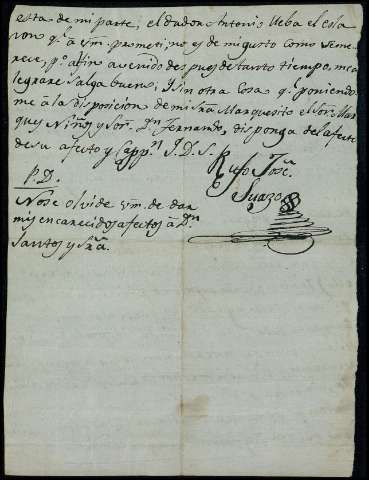 esta de mi parte; el dador Antonio lleba el esla
von q.e à vm. prometi, no es de mi gusto como se me
rece, p.o al fin a venido despues de tanto tiempo, me a
legrare salga bueno; y sin otra cosa q.e poniendo
me à la disposicion de mi Sra Marquesita el Sor. Mar
ques Niños y Sor. Dn Fernando, disponga del afecto
de su afecto y Capp.n J. D. S.
Rufo Jose
Suazo
P.D.
No se olvide vm. de dar
mis encarecidos afectos à Dn.
Santos y Sra.